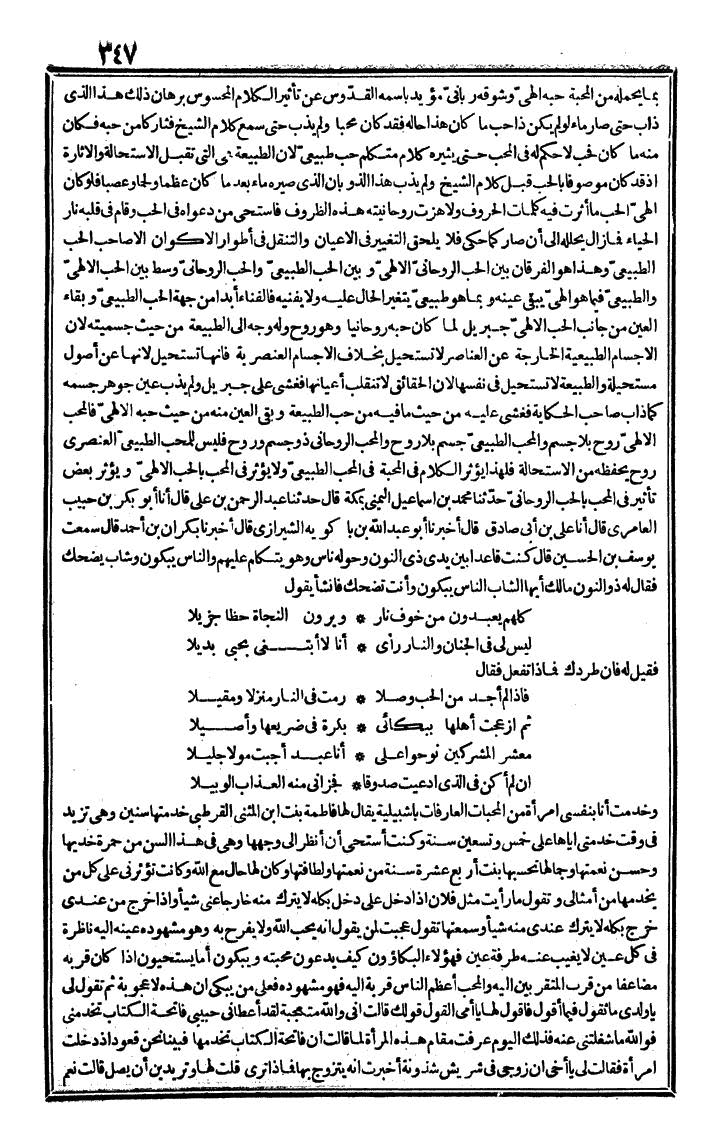 ٣٤٧
بما يحمله من المحبة حبه الهىّ وشوقه ربانىّ مؤيد باسمه القدّوس عن تأثير الكلام المحسوس برهان ذلك هذا الذى
ذاب حتى صار ماء لو لم يكن ذا حب ما كان هذا حاله فقد كان محبا ولم يذب حتى سمع كلام الشيخ فثار كامن حبه فكان
منه ما كان فحب لا حكم له فى المحب حتى يثيره كلام متكلم حب طبيعىّ لان الطبيعة هى التى تقبل الاستحالة والاثارة
اذ قد كان موصوفا بالحب قبل كلام الشيخ ولم يذب هذا الذوبان الذى صيره ماء بعد ما كان عظما ولحما وعصبا فلو كان
الهىّ الحب ما أثرت فيه كلمات الحروف ولا هزت روحانيته هذه الظروف فاستحى من دعواه فى الحب وقام فى قلبه نار
الحياء فما زال يحلله الى أن صار كما حكى فلا يلحق التغيير فى الاعيان والتنقل فى أطوار الاكوان الا صاحب الحب
الطبيعىّ وهذا هو الفرقان بين الحب الروحانىّ الالهىّ وبين الحب الطبيعىّ والحب الروحانىّ وسط بين الحب الالهىّ
والطبيعىّ فبما هو الهىّ يبقى عينه وبما هو طبيعىّ يتغير الحال عليه ولا يفنيه فالفناء أبدا من جهة الحب الطبيعىّ وبقاء
العين من جانب الحب الالهىّ جبريل لما كان حبه روحانيا وهو روح وله وجه الى الطبيعة من حيث جسميته لان
الاجسام الطبيعية الخارجة عن العناصر لا تستحيل بخلاف الاجسام العنصرية فانها تستحيل لانها عن أصول
مستحيلة والطبيعة لا تستحيل فى نفسها لان الحقائق لا تنقلب أعيانها فغشى على جبريل ولم يذب عين جوهر جسمه
كما ذاب صاحب الحكاية فغشى عليه من حيث ما فيه من حب الطبيعة وبقى العين منه من حيث حبه الالهىّ فالمحب
الالهىّ روح بلا جسم والمحب الطبيعىّ جسم بلا روح والمحب الروحانى ذو جسم وروح فليس للمحب الطبيعىّ العنصرى
روح يحفظه من الاستحالة فلهذا يؤثر الكلام فى المحبة فى المحب الطبيعىّ ولا يؤثر فى المحب بالحب الالهىّ ويؤثر بعض
تأثير فى المحب بالحب الروحانىّ حدثنا محمد بن اسماعيل اليمنى بمكة قال حدثنا عبد الرحمن بن على قال أنا أبو بكر بن حبيب
العامرى قال أنا على بن أبى صادق قال أخبرنا أبو عبد الله بن باكويه الشيرازى قال أخبرنا بكران بن أحمد قال سمعت
يوسف بن الحسين قال كنت قاعدا بين يدى ذى النون وحوله ناس وهو يتكلم عليهم والناس يبكون وشاب يضحك
فقال له ذو النون مالك أيها الشاب الناس يبكون وأنت تضحك فانشأ يقول
كلهم يعبدون من خوف نار * ويرون النجاة حظا جزيلا
ليس لى فى الجنان والنار رأى * أنا لا أبتغى بحبى بديلا
فقيل له فان طردك فماذا تفعل فقال
فاذا لم أجد من الحب وصلا * رمت فى النار منزلا ومقيلا
ثم ازعجت أهلها ببكائى * بكرة فى ضريعها وأصيلا
معشر المشركين نوحوا على * أنا عبد أحببت مولا جليلا
ان لم أكن فى الذى ادعيت صدوقا * فجزانى منه العذاب الوبيلا
وخدمت أنا بنفسى امرأة من المحبات العارفات باشبيلية يقال لها فاطمة بنت ابن المثنى القرطبى خدمتها سنين وهى تزيد
فى وقت خدمتى اياها على خمس وتسعين سنة وكنت أستحى أن أنظر الى وجهها وهى فى هذا السن من حمرة خديها
وحسن نعمتها وجمالها تحسبها بنت أربع عشرة سنة من نعمتها ولطافتها وكان لها حال مع الله وكانت تؤثرنى على كل من
يخدمها من أمثالى وتقول ما رأيت مثل فلان اذا دخل على دخل بكله لا يترك منه خارجا عنى شيأ واذا خرج من عندى
خرج بكله لا يترك عندى منه شيأ وسمعتها تقول عجبت لمن يقول انه يحب الله ولا يفرح به وهو مشهوده عينه اليه ناظرة
فى كل عين لا يغيب عنه طرفة عين فهؤلاء البكاؤون كيف يدعون محبته ويبكون أما يستحيون اذا كان قربه
مضاعفا من قرب المتقربين اليه والمحب أعظم الناس قربة اليه فهو مشهوده فعلى من يبكى ان هذه لاعجوبة ثم تقول لى
يا ولدى ما تقول فيما أقول فاقول لها يا أمى القول قولك قالت انى والله متعجبة لقد أعطانى حبيبى فاتحة الكتاب تخدمنى
فوالله ما شغلتنى عنه فذلك اليوم عرفت مقام هذه المرأة لما قالت ان فاتحة الكتاب تخدمها فبينا نحن قعود اذ دخلت
امرأة فقالت لى يا أخى ان زوجى فى شريش شذونة أخبرت انه يتزوج بها فماذا ترى قلت لها وتريدين أن يصل قالت نعم